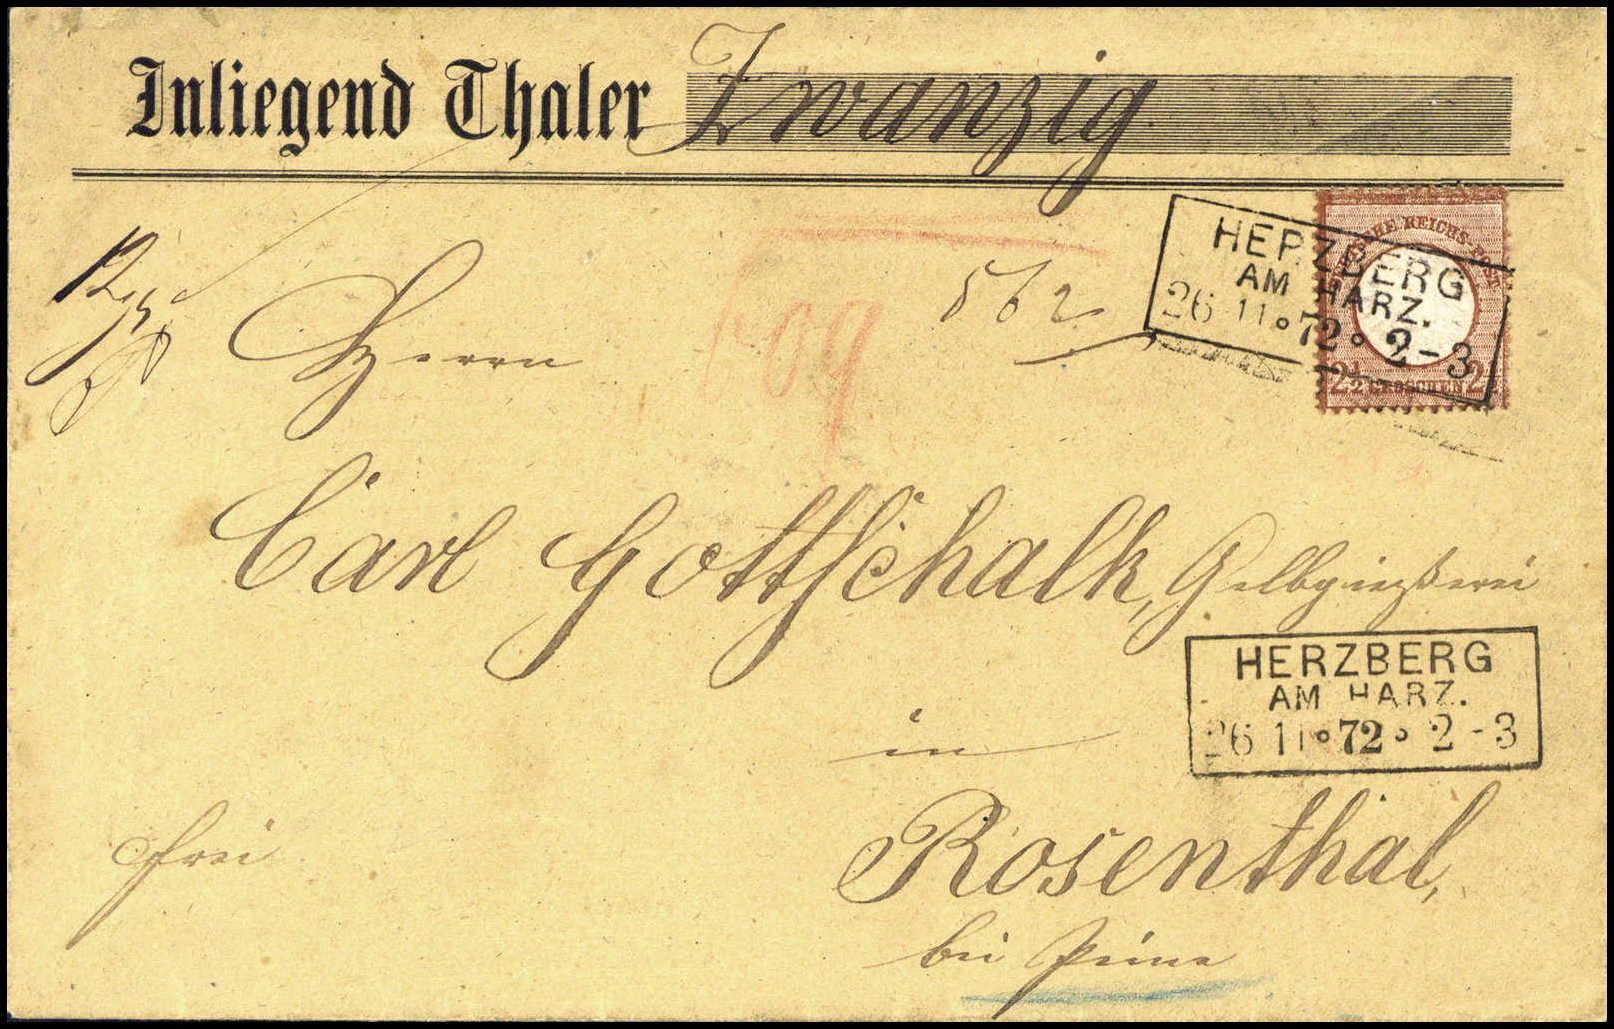 Inliegend Thaler Zwanzig
HERZBERG
AM HARZ.
26 11 72 2-3
DEUTSCHE REICHS-POST
2½ GROSCHEN 2½
562
609
Herrn
Carl Gottschalk, Gelbgießerei
HERZBERG
AM HARZ.
26 11 72 2-3
in
frei
Rosenthal,
bei Peine